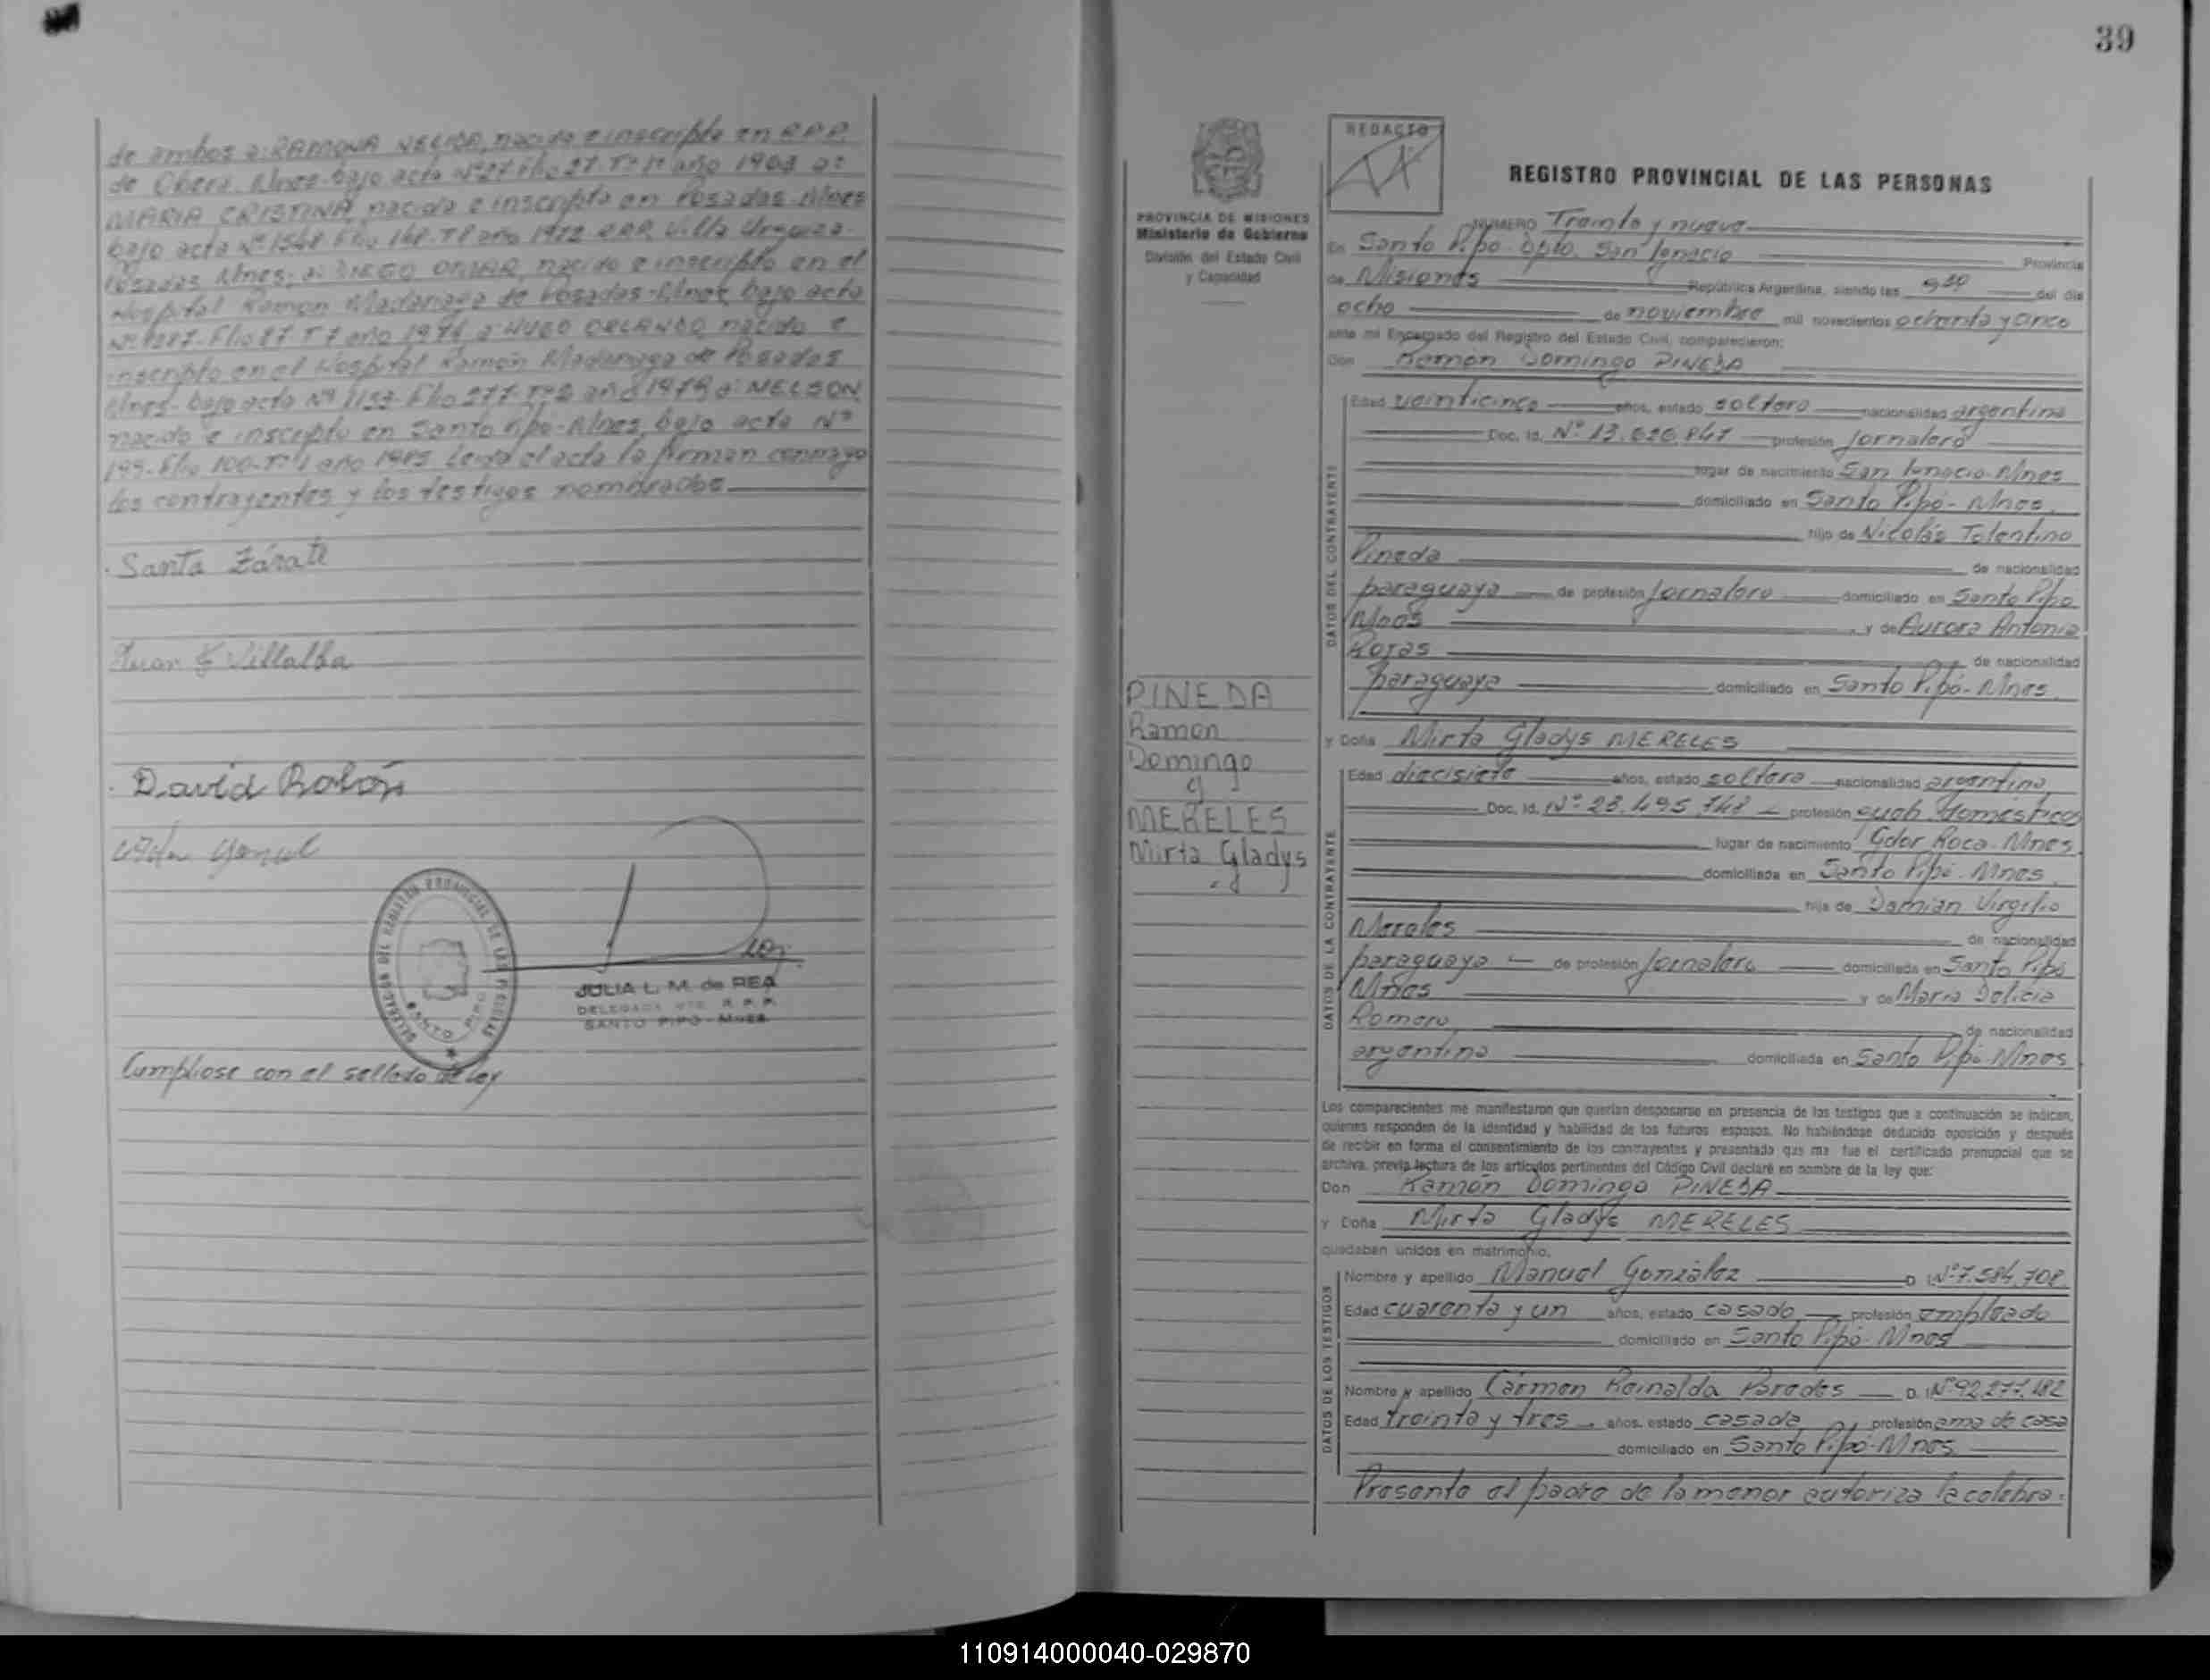 de ambos a: RAMONA NELIDA, nacida e inscripta en RPP.
de Oberá. Mnes- bajo acta Nº27 flio 27. Tº 1º año 1969 a:
MARIA CRISTINA nacida e inscripta en Posadas-Mnes
bajo acta Nº 1548 Flio 148-T8 año 1972 RPP. Villa Urquiza-
Posadas Mnes; a: DIEGO OMAR, nacido e inscripto en el
Hospital Ramon Madariaga de Posadas-Mnes, bajo acta
Nº 1287-Flio 87 T 7 año 1976, a: HUGO ORLANDO, nacido e
inscripto en el Hospital Ramón Madariaga de Posadas
Mnes- bajo acta Nº 1153-Flio 277-Tº 2 año 1979 a: NELSON
nacido e inscripto en Santo Pipó-Mnes, bajo acta Nº
199-Flio 100-Tº 1 año 1985 Leida el acta la firman conmigo
los contrayentes y los testigos nombrados
Santa Zárate
Juan Villalba
David
DELEGACION DEL REGISTRO PROVINCIAL DE LAS PERSONAS
SANTO PIPO
JULIA L. M. de REA
SANTO PIPO - MNES.
Cumpliose con el sellado de Ley
39
PROVINCIA DE MISIONES
Ministerio de Gobierno
División del Estado Civil
y Capacidad
PINEDA
Ramon
Domingo
y
MERELES
Mirta Gladys
REDACTO
REGISTRO PROVINCIAL DE LAS PERSONAS
NUMERO Treinta y nueve
En Santo Pipó-Dpto. San Ignacio Provincia
de Misiones República Argentina, siendo las 9,30 del día
ocho de noviembre mil novecientos ochenta y cinco
ante mi Encargado del Registro del Estado Civil, comparecieron:
Don Ramón Domingo PINEDA
DATOS DEL CONTRAYENTE
Edad veinticinco años, estado soltero nacionalidad argentina
Doc. Id. Nº 13.626.847 profesión Jornalero
lugar de nacimiento San Ignacio-Mnes
domiciliado en Santo Pipó-Mnes.
hijo de Nicolás Tolentino
Pineda de nacionalidad
paraguaya de profesión Jornalero domiciliado en Santo Pipó
Mnes y de Aurora Antonia
Rojas de nacionalidad
paraguaya domiciliado en Santo Pipó-Mnes.
y Doña Mirta Gladys MERELES
DATOS DE LA CONTRAYENTE
Edad diecisiete años, estado soltera nacionalidad argentina
Doc. Id. Nº 23.495.748 profesión queh. domésticos
lugar de nacimiento Gdor Roca-Mnes.
domiciliada en Santo Pipó-Mnes.
hija de Damián Virgilio
Mereles de nacionalidad
paraguaya de profesión Jornalero domiciliada en Santo Pipó
Mnes y de María Delicia
Romero de nacionalidad
argentina domiciliada en Santo Pipó-Mnes
Los comparecientes me manifestaron que querían desposarse en presencia de los testigos que a continuación se indican,
quienes responden de la identidad y habilidad de los futuros esposos. No habiéndose deducido oposición y después
de recibir en forma el consentimiento de los contrayentes y presentado que me fue el certificado prenupcial que se
archiva, previa lectura de los artículos pertinentes del Código Civil declaré en nombre de la ley que:
Don Ramón Domingo PINEDA
y Doña Mirta Gladys MERELES
quedaban unidos en matrimonio.
DATOS DE LOS TESTIGOS
Nombre y apellido Manuel González D. I. Nº 7.584.708
Edad cuarenta y un años, estado casado profesión empleado
domiciliado en Santo Pipó-Mnes
Nombre y apellido Carmen Reinalda Paredes D. I. Nº 92.277.182
Edad treinta y tres años, estado casada profesión ama de casa
domiciliado en Santo Pipó-Mnes
Presente el padre de la menor autoriza la celebra-
110914000040-029870